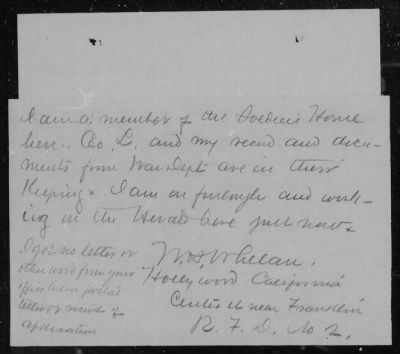 I am a member of the Soldiers Home
here. Co. L. and my record and docu-
ments from War Dept. are in their
Keeping. I am on furlough and work-
ing in the here just now.
W.H. Whelan,
Hollywood California
Center St near Franklin
R. F. D. No 2.
I got no letter or
other word from your
office but a postal
letter of receipt of
application